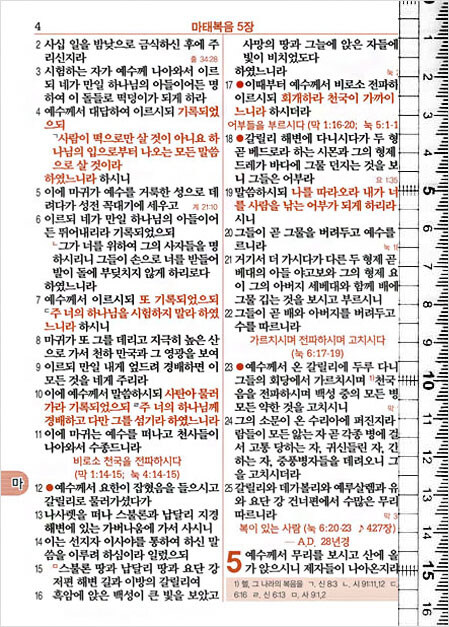 4
마태복음 5장
2 사십 일을 밤낮으로 금식하신 후에 주
리신지라 출 34:28
3 시험하는 자가 예수께 나아와서 이르
되 네가 만일 하나님의 아들이어든 명
하여 이 돌들로 떡덩이가 되게 하라
4 예수께서 대답하여 이르시되 기록되었
으되
ㄱ사람이 떡으로만 살 것이 아니요 하
나님의 입으로부터 나오는 모든 말씀
으로 살 것이라
하였느니라 하시니
5 이에 마귀가 예수를 거룩한 성으로 데
려다가 성전 꼭대기에 세우고 계 21:10
6 이르되 네가 만일 하나님의 아들이어
든 뛰어내리라 기록되었으되
ㄴ그가 너를 위하여 그의 사자들을 명
하시리니 그들이 손으로 너를 받들어
발이 돌에 부딪치지 않게 하리로다
하였느니라
7 예수께서 이르시되 또 기록되었으되
ㄷ주 너의 하나님을 시험하지 말라 하였
느니라 하시니
8 마귀가 또 그를 데리고 지극히 높은 산
으로 가서 천하 만국과 그 영광을 보여
9 이르되 만일 내게 엎드려 경배하면 이
모든 것을 네게 주리라
10 이에 예수께서 말씀하시되 사탄아 물러
가라 기록되었으되 ㄹ주 너의 하나님께
경배하고 다만 그를 섬기라 하였느니라
11 이에 마귀는 예수를 떠나고 천사들이
나아와서 수종드니라
비로소 천국을 전파하시다
(막 1:14-15; 눅 4:14-15)
마
12 ●예수께서 요한이 잡혔음을 들으시고
갈릴리로 물러가셨다가
13 나사렛을 떠나 스불론과 납달리 지경
해변에 있는 가버나움에 가서 사시니
14 이는 선지자 이사야를 통하여 하신 말
씀을 이루려 하심이라 일렀으되
15 ㅁ스불론 땅과 납달리 땅과 요단 강
저편 해변 길과 이방의 갈릴리여
16 흑암에 앉은 백성이 큰 빛을 보았고
사망의 땅과 그늘에 앉은 자들에
빛이 비치었도다
하였느니라
17 ●이때부터 예수께서 비로소 전파하
이르시되 회개하라 천국이 가까이
느니라 하시더라
어부들을 부르시다 (막 1:16-20; 눅 5:1-1
18 ●갈릴리 해변에 다니시다가 두 형
곧 베드로라 하는 시몬과 그의 형제
드레가 바다에 그물 던지는 것을 보
니 그들은 어부라
19 말씀하시되 나를 따라오라 내가 너
를 사람을 낚는 어부가 되게 하리라
시니
20 그들이 곧 그물을 버려두고 예수를
르니라
21 거기서 더 가시다가 다른 두 형제 곧
베대의 아들 야고보와 그의 형제 요
이 그의 아버지 세베대와 함께 배에
그물 깁는 것을 보시고 부르시니
22 그들이 곧 배와 아버지를 버려두고
수를 따르니라
가르치시며 전파하시며 고치시다
(눅 6:17-19)
23 ●예수께서 온 갈릴리에 두루 다니
그들의 회당에서 가르치시며 1)천국
음을 전파하시며 백성 중의 모든 병
모든 약한 것을 고치시니
24 그의 소문이 온 수리아에 퍼진지라
람들이 모든 앓는 자 곧 각종 병에 걸
서 고통 당하는 자, 귀신들린 자, 간
하는 자, 중풍병자들을 데려오니 그
을 고치시더라
25 갈릴리와 데가볼리와 예루살렘과 유
와 요단 강 건너편에서 수많은 무리
따르니라
복이 있는 사람 (눅 6:20-23 ♪427장)
— A.D. 28년경
5 예수께서 무리를 보시고 산에 올
가 앉으시니 제자들이 나아온지라
1) 헬, 그 나라의 복음을 ㄱ, 신 8:3 ㄴ, 시 91:11,12 ㄷ,
6:16 ㄹ, 신 6:13 ㅁ, 사 9:1,2
1
5
10
15